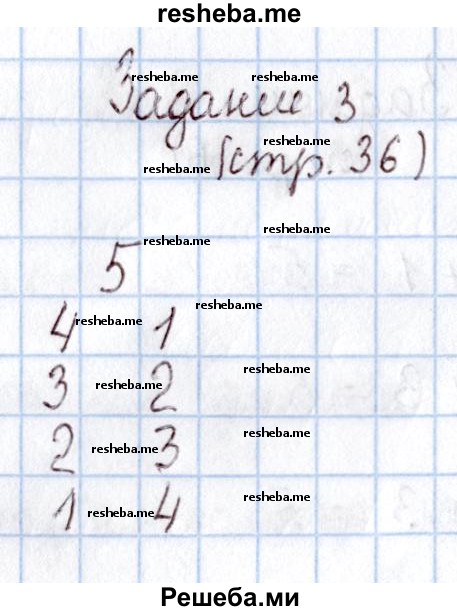 resheba.me
Задание 3
resheba.me resheba.me
(стр. 36)
resheba.me resheba.me
5
resheba.me resheba.me
4 1
resheba.me resheba.me
3 2
resheba.me resheba.me
2 3
resheba.me resheba.me
1 4
resheba.me resheba.me
Решеба.ми